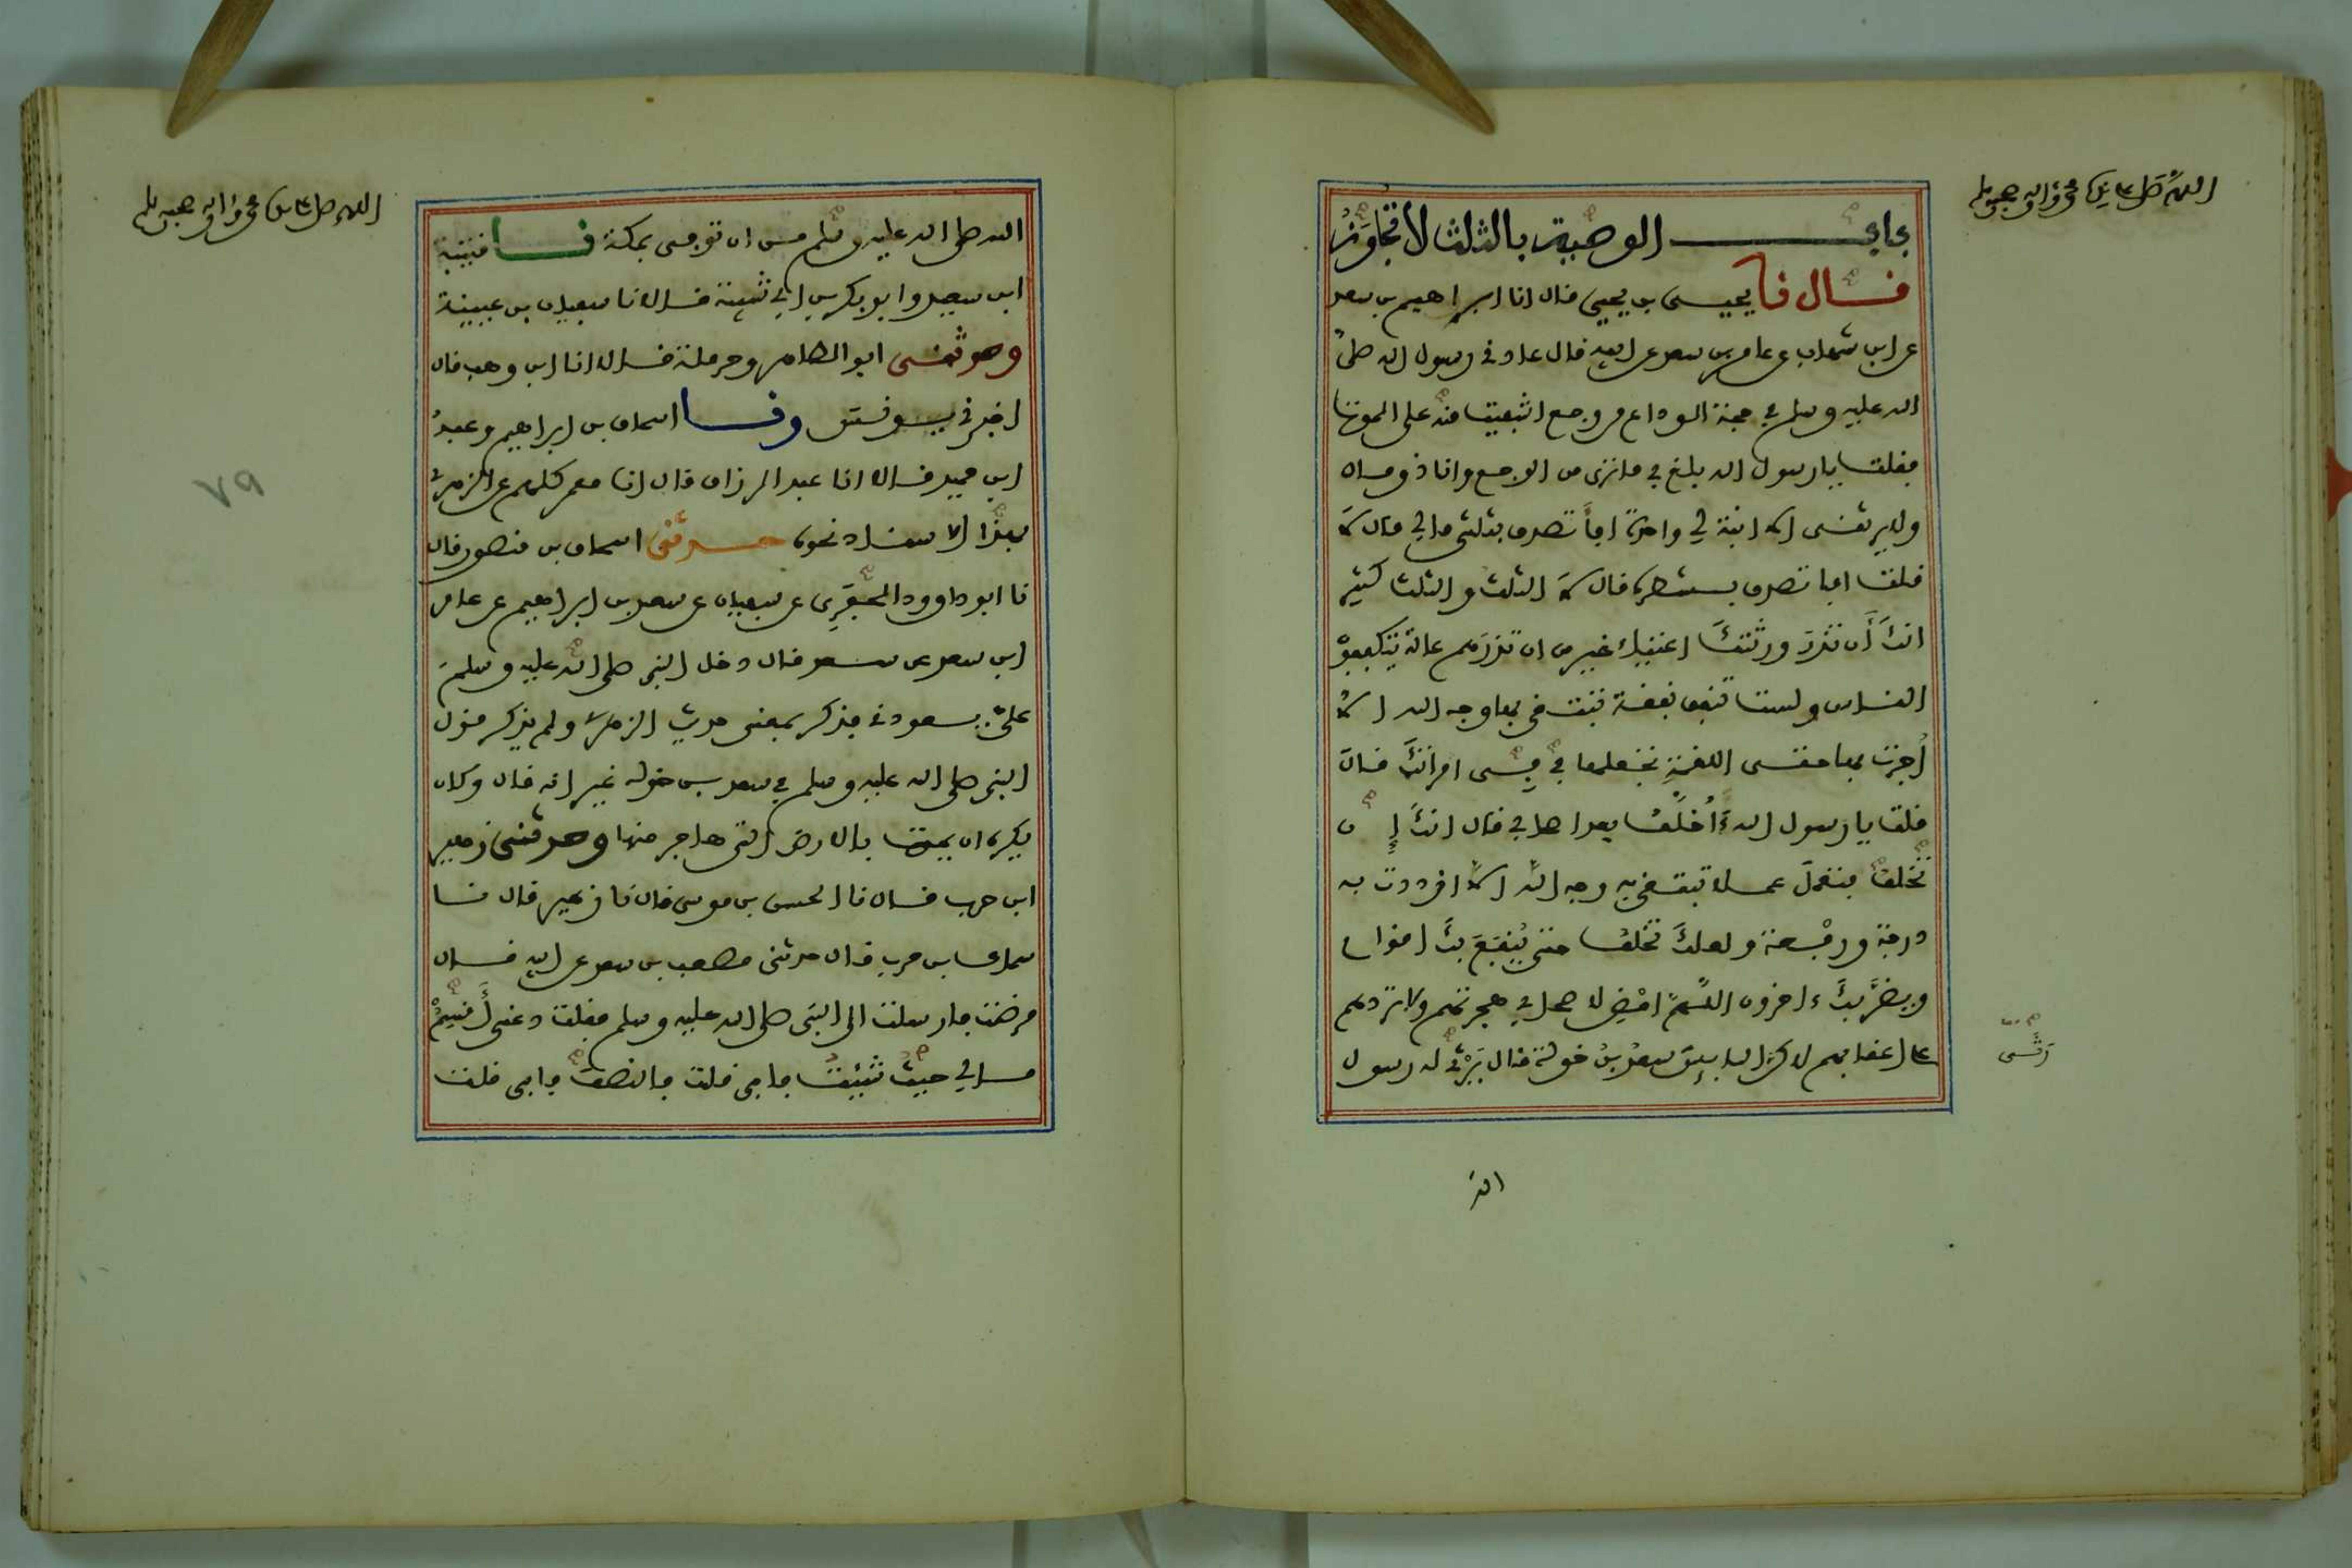 اللهم صل على سيدنا محمد وءاله وصحبه وسلم
باب الوصية بالثلث لا تتجاوز
قال نا يحيى بن يحيى قال انا ابراهيم بن سعد
عن ابن شهاب عن عامر بن سعد عن ابيه قال عادني رسول الله صلى
الله عليه وسلم في حجة الوداع من وجع اشفيت منه على الموت
فقلت يا رسول الله بلغ بي ما ترى من الوجع وانا ذو مال
ولا يرثني الا ابنة لي واحدة افأتصدق بثلثي مالي قال لا
قلت افاتصدق بشطره قال لا الثلث والثلث كثير
انك أن تذر ورثتك اغنياء خير من ان تذرهم عالة يتكففون
الناس ولست تنفق نفقة تبتغي بها وجه الله الا
أجرت بها حتى اللقمة تجعلها في في امرأتك قال
قلت يا رسول الله أخلف بعد اصحابي قال انك إن
تخلف فتعمل عملا تبتغي به وجه الله الا ازددت به
درجة ورفعة ولعلك تخلف حتى ينفع بك اقوام
ويضر بك ءاخرون اللهم امض لاصحابي هجرتهم ولا تردهم
على اعقابهم لاكن البايس سعد بن خولة قال رثى له رسول
الله
اللهم صل على سيدنا محمد وءاله وصحبه وسلم
الله صلى الله عليه وسلم من ان توفى بمكة نا قتيبة
ابن سعيد وابو بكر بن ابي شيبة قالا نا سفيان بن عيينة
وحدثني ابو الطاهر وحرملة قالا انا ابن وهب قال
اخبرني يونس ونا اسحاق بن ابراهيم وعبد
ابن حميد قالا انا عبد الرزاق قال انا معمر كلهم عن الزهري
بهذا الاسناد نحوه حدثني اسحاق بن منصور قال
نا ابو داوود الحفري عن سفيان عن سعد بن ابراهيم عن عامر
ابن سعد عن سعد قال دخل النبي صلى الله عليه وسلم
علي يعودني فذكر بمعنى حديث الزهري ولم يذكر قول
النبي صلى الله عليه وسلم في سعد بن خولة غير انه قال وكان
يكره ان يموت بالارض التي هاجر منها وحدثني زهير
ابن حرب قال نا الحسن بن موسى قال نا زهير قال نا
سماك بن حرب قال حدثني مصعب بن سعد عن ابيه قال
مرضت فارسلت الى النبي صلى الله عليه وسلم فقلت دعني أقسم
مالي حيث شئت فابى قلت فالنصف فابى قلت
٧٩